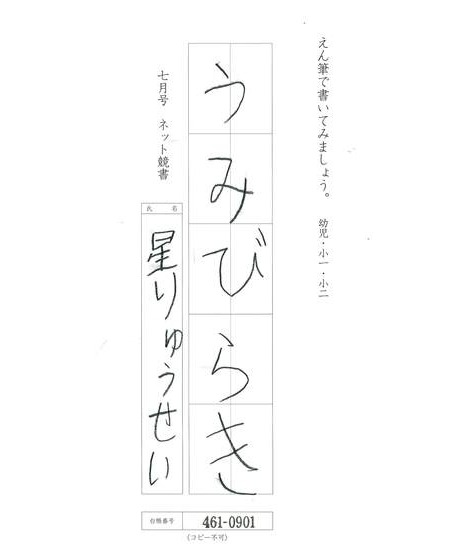 えん筆で書いてみましょう。 幼児・小一・小二
うみびらき
七月号 ネット競書
氏名
星りゅうせい
台帳番号 461-0901
(コピー不可)